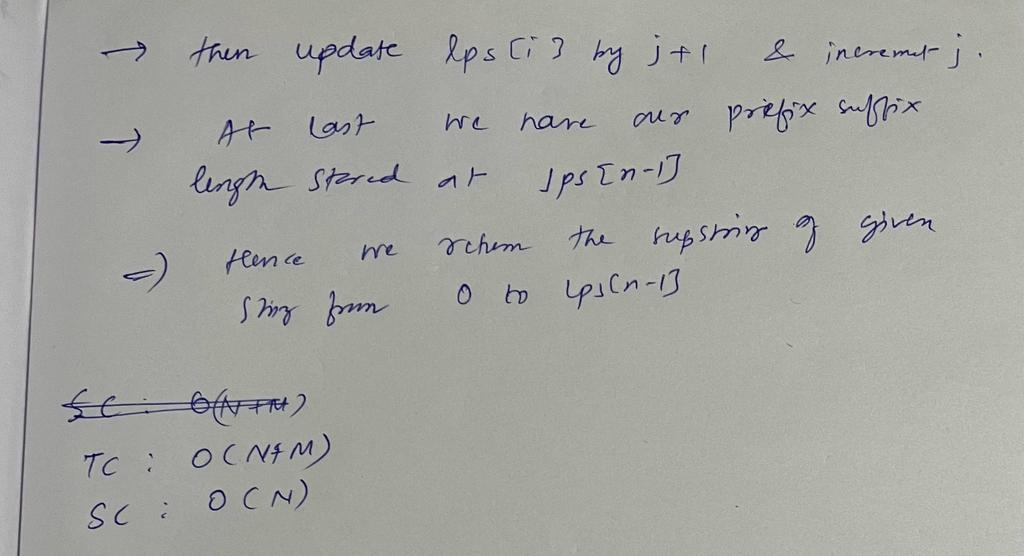 → then update lps[i] by j+1 & increment j.
→ At last we have our prefix suffix
length stored at lps[n-1]
=) Hence we return the substring of given
string from 0 to lps[n-1]
SC : O(N+M)
TC : O(N+M)
SC : O(N)